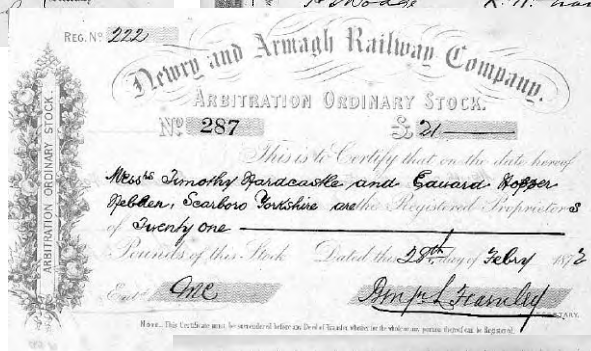 REG. Nº 222
Newry and Armagh Railway Company.
ARBITRATION ORDINARY STOCK.
Nº 287 £ 21
This is to Certify that on the date hereof
Messrs Timothy Hardcastle and Edward Hopper
Hebden, Scarboro Yorkshire are the Registered Proprietors
of Twenty one
Pounds of this Stock Dated this 28th day of Febry 1872
Entd
Note. This Certificate must be surrendered before any Deed of Transfer whether for the whole or any portion thereof can be Registered.
ARBITRATION ORDINARY STOCK.